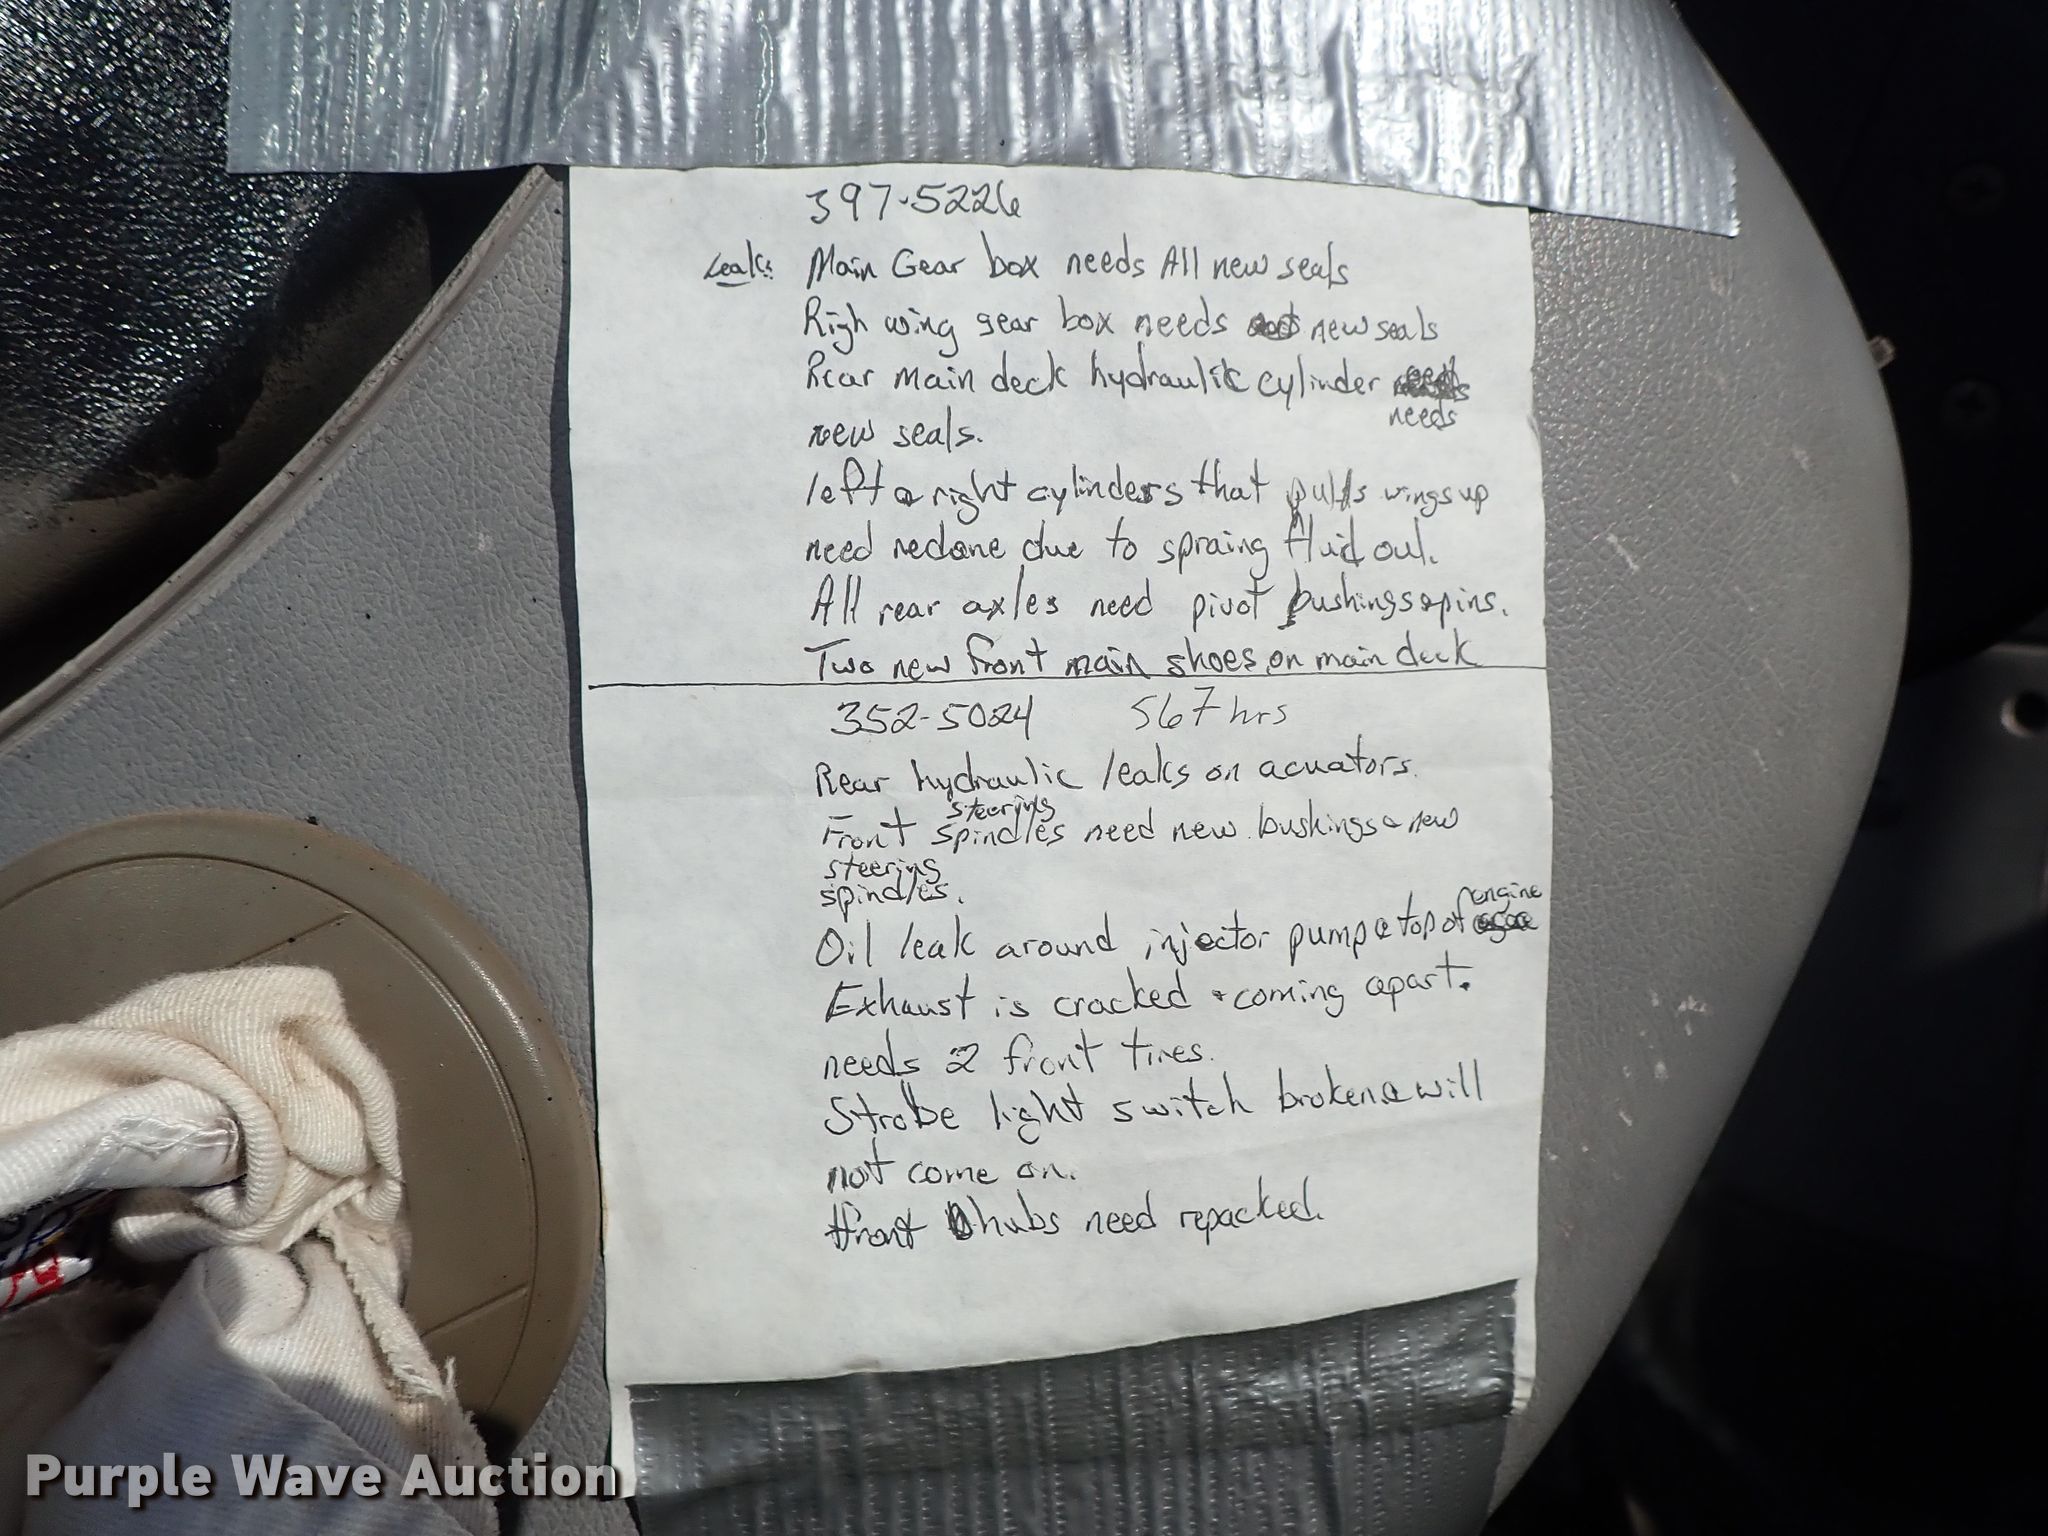 397-5226
Leaks Main Gear box needs All new seals
Righ wing gear box needs new seals
Rear main deck hydraulic cylinder needs
new seals.
left & right cylinders that pulls wings up
need redone due to spraing fluid out.
All rear axles need pivot bushings & pins.
Two new front main shoes on main deck
352-5024 567 hrs
Rear hydraulic leaks on acuators.
steering
Front spindles need new bushings & new
steering
spindles.
engine
Oil leak around injector pump & top of
Exhaust is cracked & coming apart.
needs 2 front tires.
Strobe light switch broken & will
not come on.
front hubs need repacked.
Purple Wave Auction